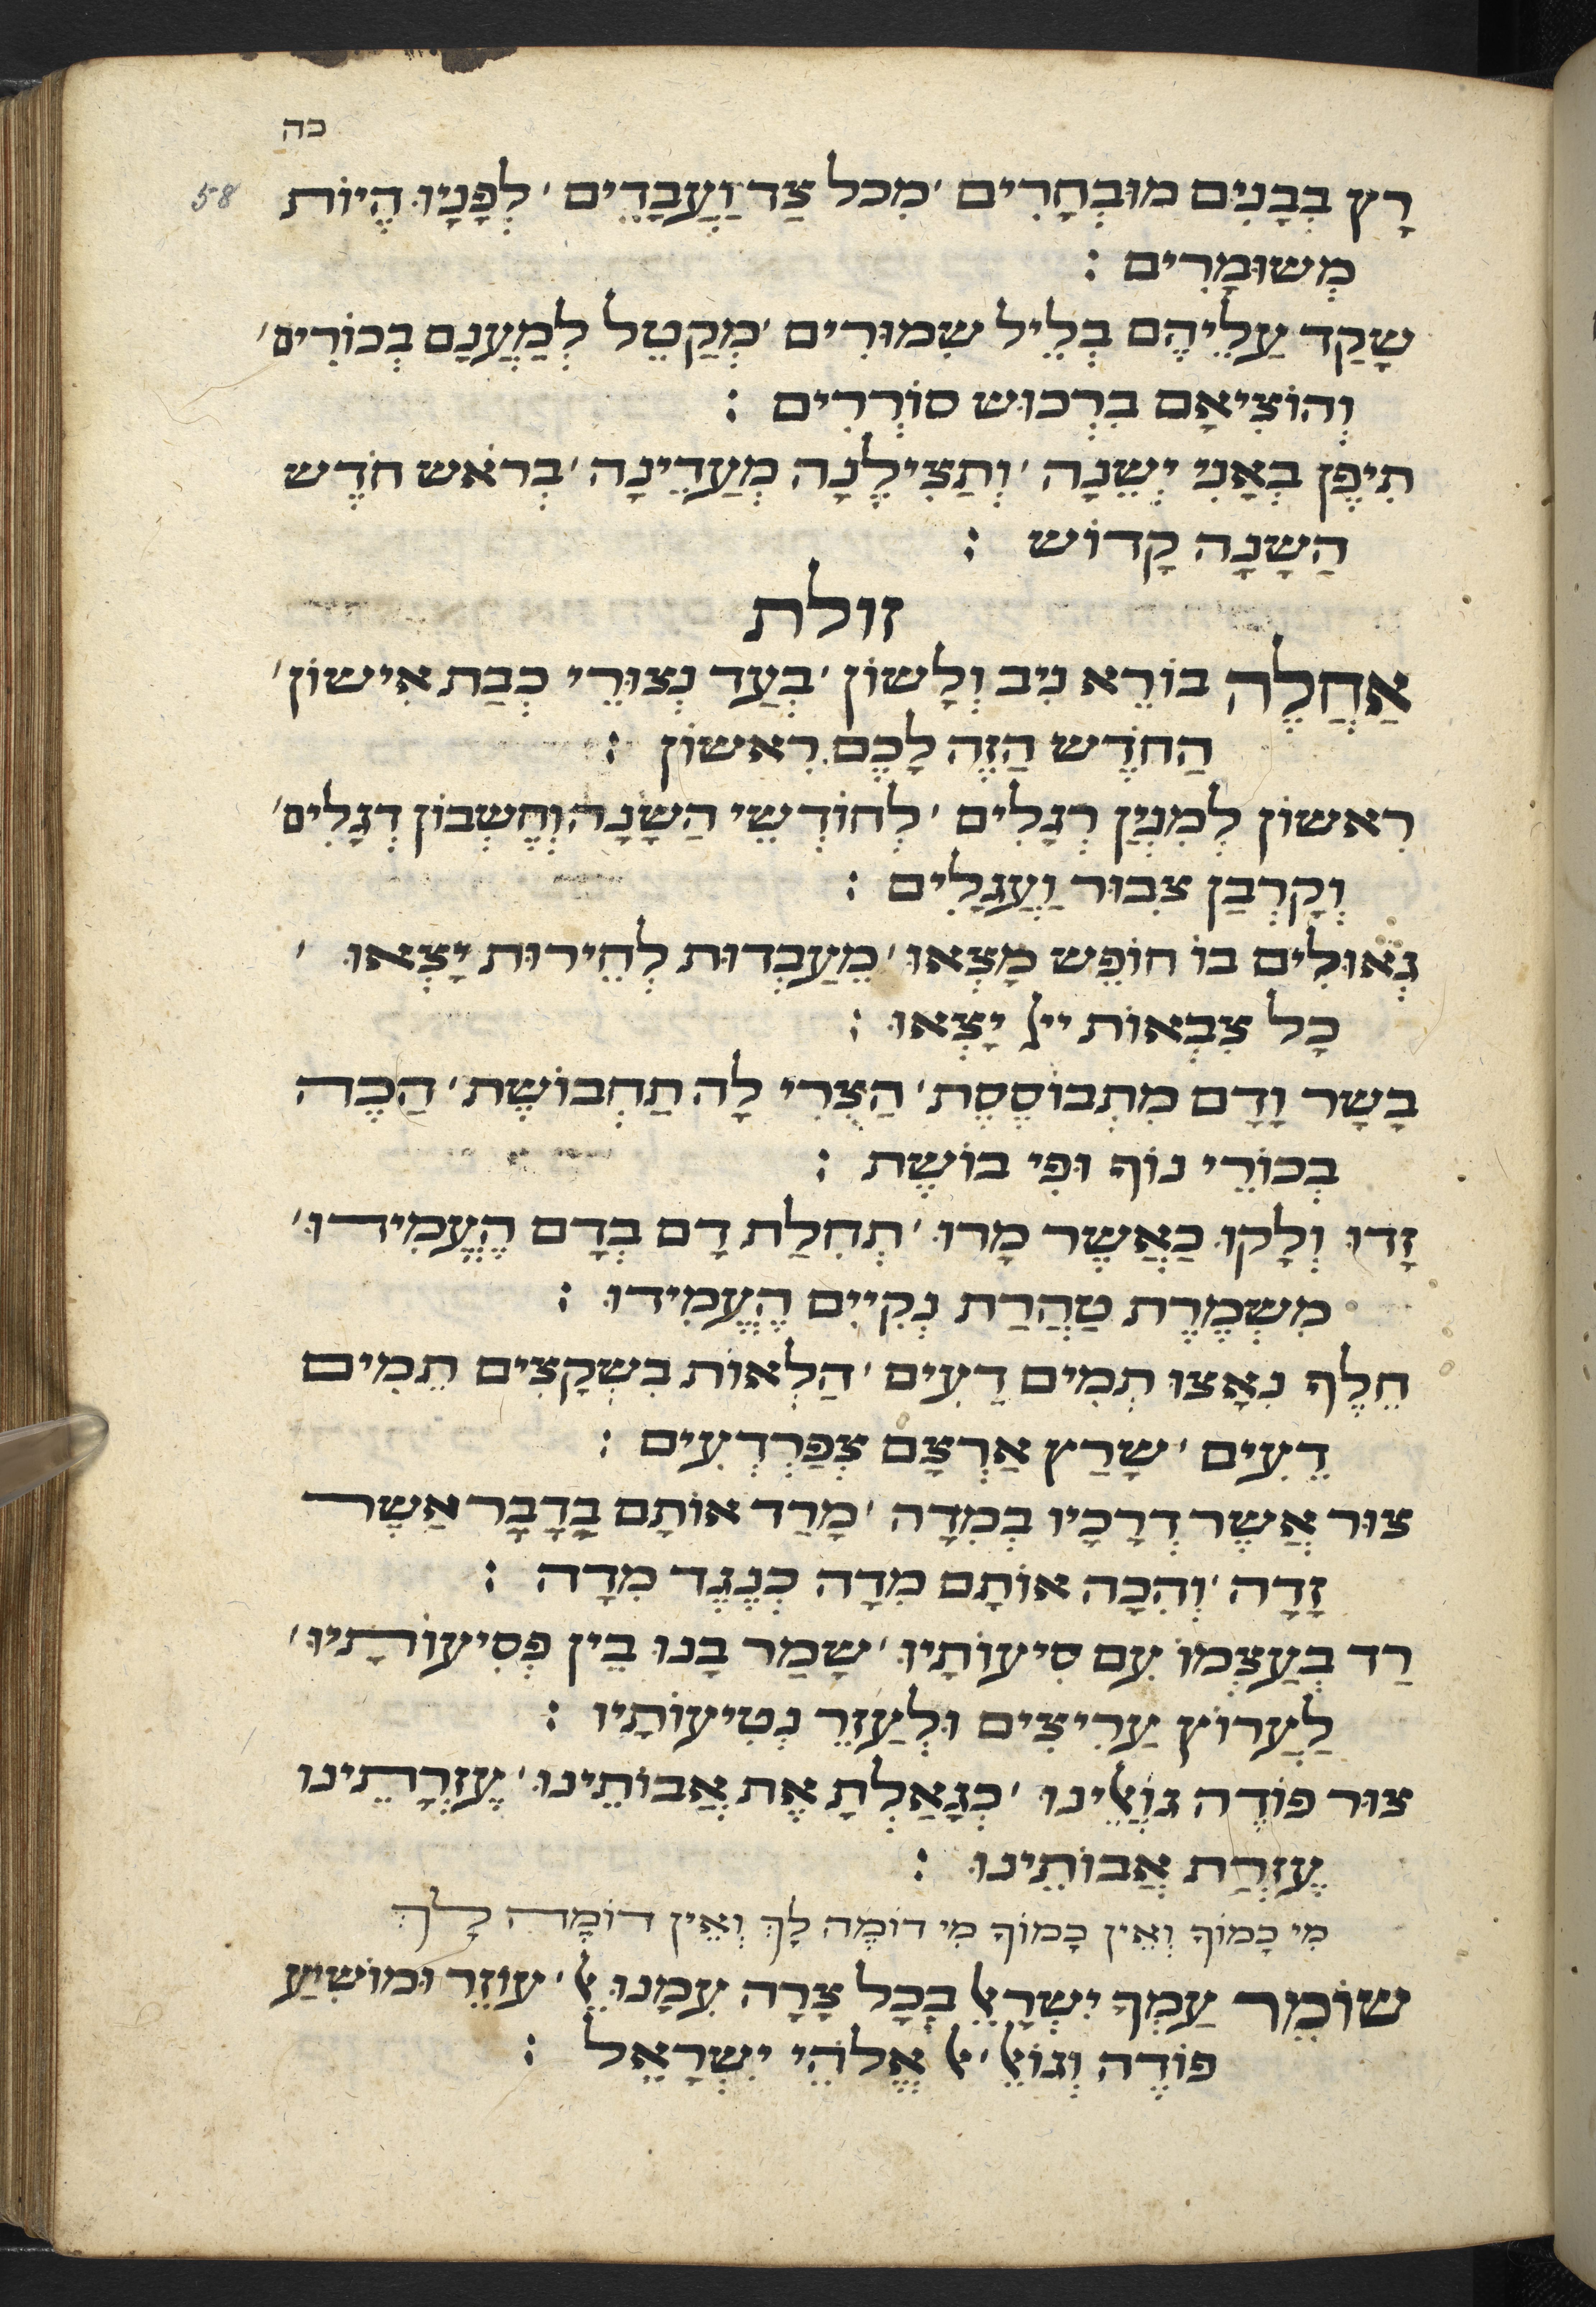 כה
58
רָץ בְּבָנִים מוּבְחָרִים ׳ מִכל צַד וַעֲבָדִים ׳ לְפָנָיו הֱיוֹת
מְשׁוּמָרִים :
שָׁקַד עַלֵיהֶם בְּלֵיל שִׁמוּרִים ׳ מְקַטֵל לְמַעֲנָם בְּכוֹרִים ׳
וְהוֹצִיאָם בִּרְכוּשׁ סוֹרְרִים :
תִיפֶן בְּאָנִי יְשֵׁנָה ׳ וְתַצִילֶנָה מְעַדִינָה ׳ בְּרֹאשׁ חֹדֶשׁ
הַשָׁנָה קָדוֹשׁ :
זולת
אַחֲלֶה בּוֹרֵא נִיב וְלָשׁוֹן ׳ בְּעַד נְצוּרֵי כְּבַת אִישׁוֹן ׳
הַחֹדֶשׁ הַזֶה לָכֶם רִאשׁוֹן :
רִאשׁוֹן לְמִנְיַן רְגָלִים ׳ לְחוֹדְשֵׁי הַשָׁנָה וְחֶשְׁבּוֹן דְגָלִים ׳
וְקָרְבַּן צִבּוּר וַעֲגָלִים :
גְאוּלִים בּוֹ חוֹפֶשׁ מָצְאוּ ׳ מֵעַבְדוּת לְחֵירוּת יָצְאוּ ׳
כָּל צִבְאוֹת יי׳ יָצְאוּ :
בָּשָׂר וָדָם מִתְבּוֹסֶסֶת ׳ הַצֳרִי לָה תַחְבּוֹשֶׁת ׳ הַכֶה
בְּכוֹרֵי נוֹף וּפִי בוֹשֶׁת :
זָדוּ וְלָקוּ כַּאֲשֶׁר מָרוּ ׳ תְחִלַת דָם בְּדָם הֶעֱמִידוּ ׳
מִשְׁמֶרֶת טַהֲרַת נְקִיִים הֶעֱמִידוּ :
חֵלֶף נִאָצוּ תְמִים דֵעִים ׳ הַלְאוֹת בִּשְׁקָצִים תְמִים
דֵעִים ׳ שָׁרַץ אַרְצָם צְפַרְדְעִים :
צוּר אֲשֶׁר דְרָכָיו בְּמִדָה ׳ מָרַד אוֹתָם בַּדָבָר אֲשֶׁר
זָדָה ׳ וְהִכָה אוֹתָם מִדָה כְּנֶגֶד מִדָה :
רַד בְּעַצְמוֹ עִם סִיעוֹתָיו ׳ שָׁמַר בָּנוּ בֵּין פְּסִיעוֹתָיו ׳
לַעֲרוֹץ עַרִיצִים וּלְעַזֵר נְטִיעוֹתָיו :
צוּר פּוֹדֶה גוֹאֲלֵינוּ ׳ כְּגָאַלְתָ אֶת אֲבוֹתֵינוּ ׳ עֶזְרָתֵינוּ
עֶזְרַת אֲבוֹתֵינוּ :
מִי כָּמוֹךָ וְאֵין כָּמוֹךָ מִי דוֹמֶה לָךְ וְאֵין דוֹמֶה לָךְ
שׁוֹמֵר עַמְךָ יִשְׂרָאֵל בְּכָל צָרָה עִמָנוּ אֵל ׳ עוֹזֵר וּמוֹשִׁיעַ
פּוֹדֶה וְגוֹאֵל ׳ אֵל אֱלֹהֵי יִשְׂרָאֵל :